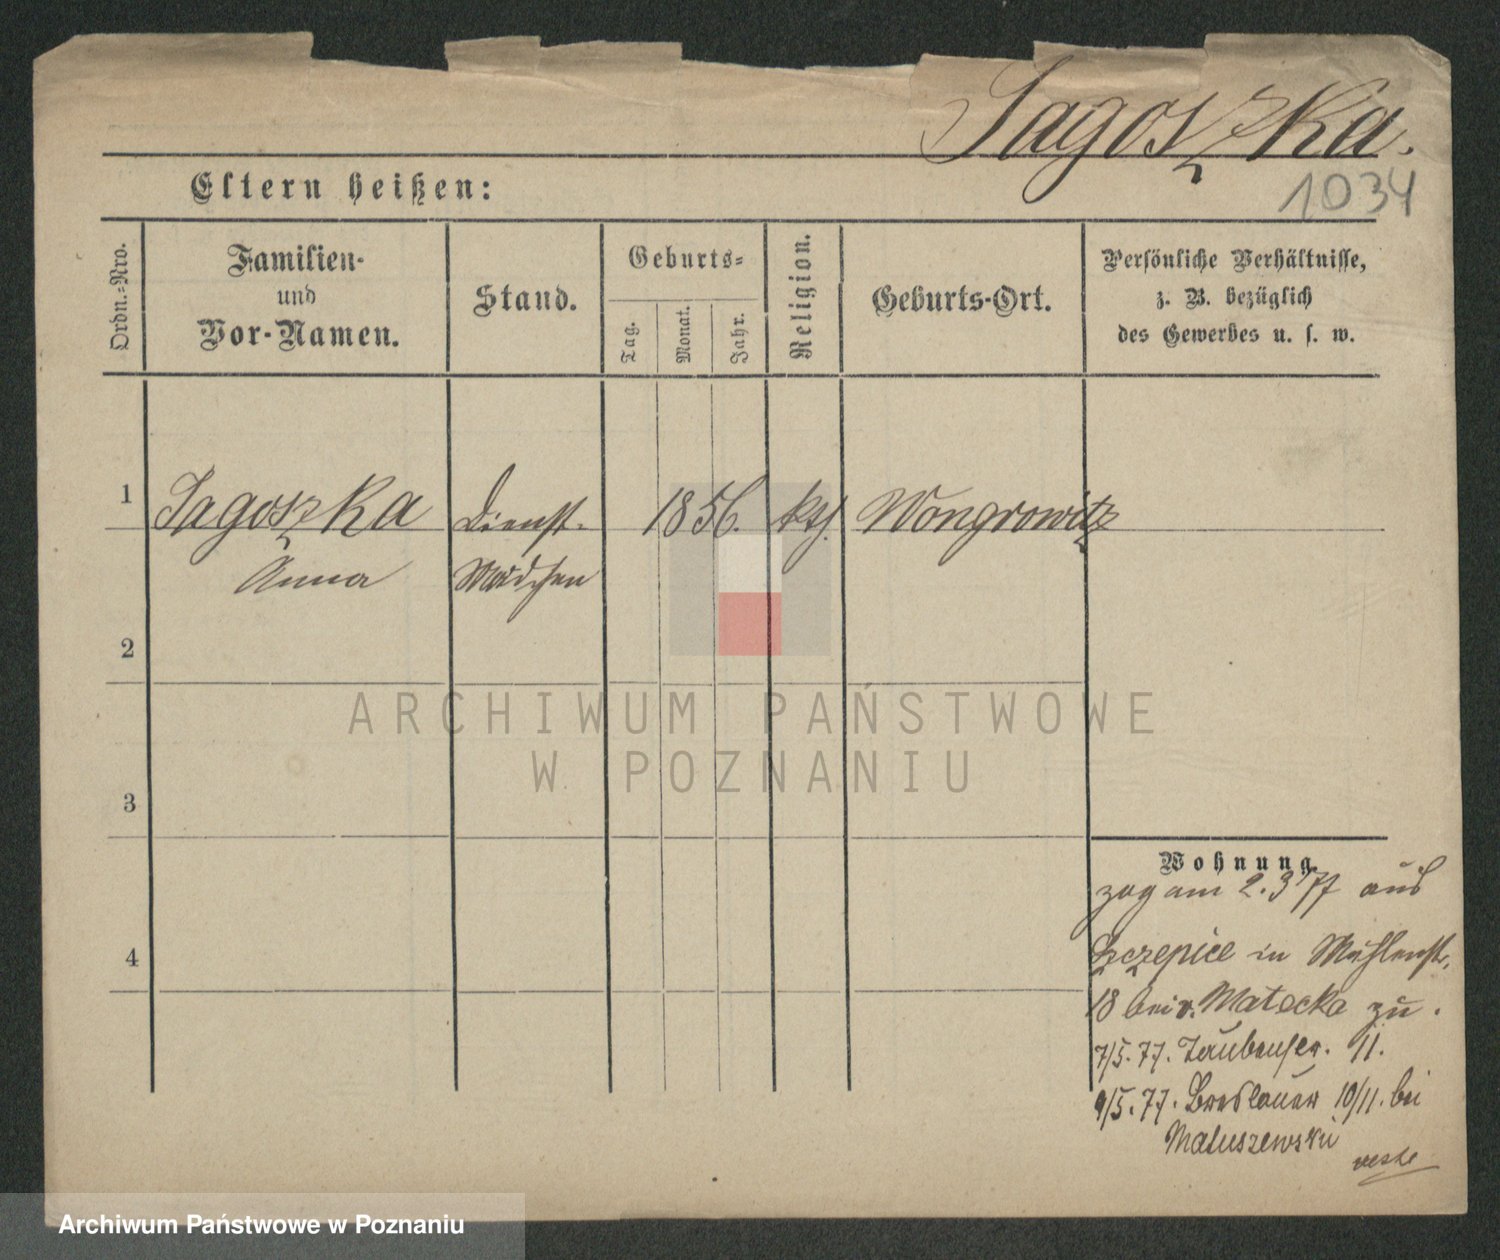 Jagoszka.
1034
Eltern heißen:
Ordn.-Nro.
Familien-
und
Vor-Namen.
Stand.
Geburts-
Tag.
Monat.
Jahr.
Religion.
Geburts-Ort.
Persönliche Verhältnisse,
z. B. bezüglich
des Gewerbes u. s. w.
1 Jagoszka Dienst- 1856. kth. Wongrowitz
Anna Mädchen
2
3
4
ARCHIWUM PAŃSTWOWE
W POZNANIU
Wohnung.
zog am 2.3 77 aus
Szczepice in Mühlenstr.
18 bei v. Matecka zu.
7/5. 77. Taubenstr. 11.
9/5. 77. Breslauer 10/11. bei
Matuszewski
Archiwum Państwowe w Poznaniu